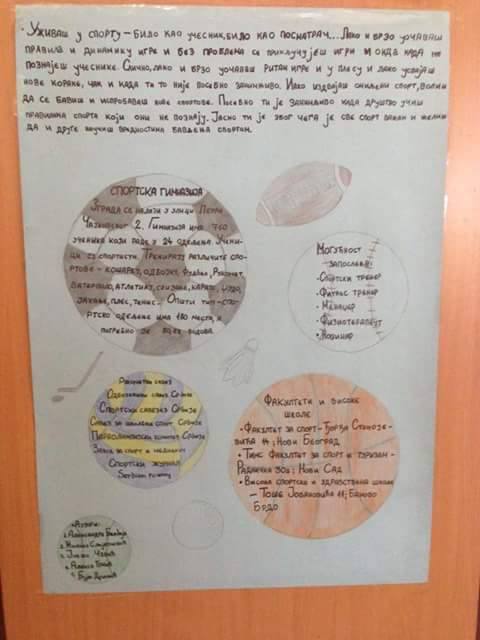 • Уживаш у спорту – било као учесник, било као посматрач... Лако и брзо уочаваш
правила и динамику игре и без проблема се прикључујеш игри и онда када не
познајеш учеснике. Слично, лако и брзо уочаваш ритам игре и у плесу и лако усвајаш
нове кораке, чак и када ти то није посебно занимљиво. Иако издвајаш омиљени спорт, волиш
да се бавиш и испробаваш нове спортове. Посебно ти је занимљиво када друштво учиш
правилима спорта који они не познају. Јасно ти је због чега је све спорт важан и желиш
да и друге научиш вредностима бављења спортом.
СПОРТСКА ГИМНАЗИЈА
Зграда се налази у улици
Чајковског 2. Гимназија има 760
ученика који раде у 24 одељења. Учени-
ци су спортисти. Тренирају различите спо-
ртове – кошарку, одбојку, фудбал, рукомет,
ватерполо, атлетику, карате, џудо,
плес, тенис. Општи тип – спо-
ртско одељење има 180 места, и
потребно је бодова.
Могућност
запослења:
• Спортски тренер
• Фитнес тренер
• Менаџер
• Физиотерапеут
• Новинар
савез
Одбојкашки савез Србије
Спортски савез Србије
Савез за школски спорт Србије
Параолимпијски комитет Србије
Завод за спорт и медицину
Спортски журнал
Serbian
Факултети и високе
школе
• Факултет за спорт – Ђорђа Станоје-
вића ; Нови Београд
• Тимс Факултет за спорт и туризам –
Радничка 30а; Нови Сад
• Висока спортска и здравствена школа
– Тоше Јовановића 11; Баново
Брдо
Аутори:
1. Александра
2.
3.
4.
5.